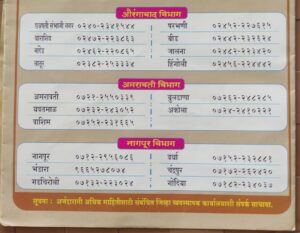 औरंगाबाद विभाग
छत्रपती संभाजी नगर ०२४०-२३४१५४४ परभणी ०२४५२-२२७६१५
धाराशिव ०२४७२-२२३८६३ बीड ०२४४२-२२३६२४
नांदेड ०२४६२-२२०८६५ जालना ०२४८२-२२३४२०
लातूर ०२३८२-२२३३४४ हिंगोली ०२४५६-२२४४४२
अमरावती विभाग
अमरावती ०७२१-२५५०३३९ बुलढाणा ०७२६२-२४८२४५
यवतमाळ ०७२३२-२४३०५२ अकोला ०७२४-२४१०२२१
वाशिम ०७२५२-२३१६६५
नागपूर विभाग
नागपूर ०७१२-२९५६०४६ वर्धा ०७१५२-२३२८४१
भंडारा ९६६५२७८०७४ चंद्रपूर ०७१७२-२६२४२०
गडचिरोली ०७१३२-२२३०२४ गोंदिया ०७१८२-२३४०३७
सूचना : अर्जदारांनी अधिक माहितीसाठी संबंधित जिल्हा व्यवस्थापक कार्यालयाशी संपर्क साधावा.